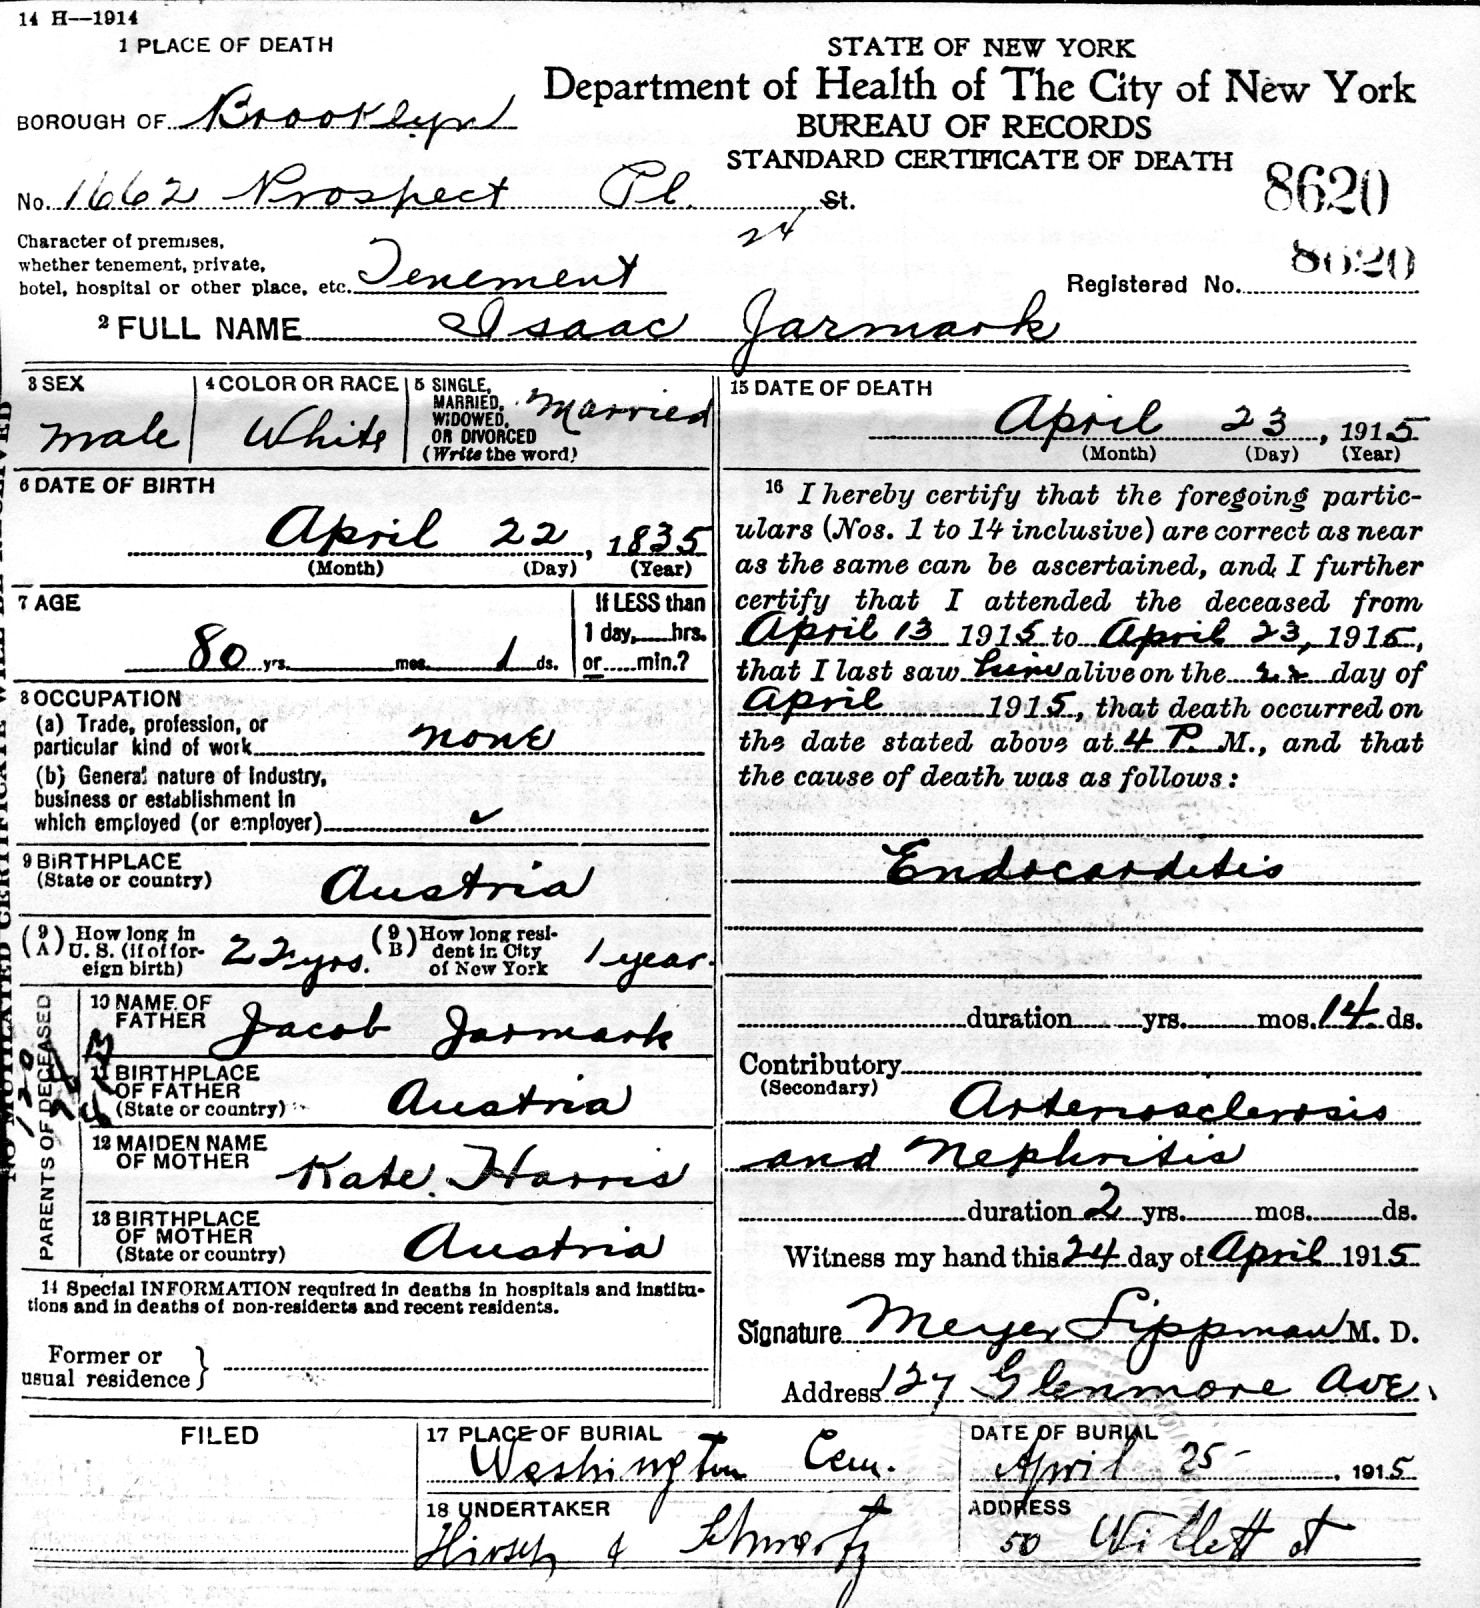 14 H--1914
1 PLACE OF DEATH
STATE OF NEW YORK
Department of Health of The City of New York
BUREAU OF RECORDS
STANDARD CERTIFICATE OF DEATH
BOROUGH OF Brooklyn
8620
No. 1662 Prospect Pl. St.
24
Character of premises,
whether tenement, private,
hotel, hospital or other place, etc. Tenement
8620
Registered No.
2 FULL NAME Isaac Jarmark
3 SEX
male
4 COLOR OR RACE
White
5 SINGLE,
MARRIED,
WIDOWED,
OR DIVORCED
(Write the word)
Married
6 DATE OF BIRTH
April 22, 1835
(Month) (Day) (Year)
7 AGE
80 yrs. mos. 1 ds.
If LESS than
1 day, hrs.
or min.?
8 OCCUPATION
(a) Trade, profession, or
particular kind of work none
(b) General nature of Industry,
business or establishment in
which employed (or employer) ✓
9 BIRTHPLACE
(State or country)
Austria
(9 A) How long in
U. S. (if of for-
eign birth)
22 yrs.
(9 B) How long resi-
dent in City
of New York
1 year.
PARENTS OF DECEASED
10 NAME OF
FATHER
Jacob Jarmark
11 BIRTHPLACE
OF FATHER
(State or country)
Austria
12 MAIDEN NAME
OF MOTHER
Kate Harris
13 BIRTHPLACE
OF MOTHER
(State or country)
Austria
14 Special INFORMATION required in deaths in hospitals and institu-
tions and in deaths of non-residents and recent residents.
Former or
usual residence }
15 DATE OF DEATH
April 23, 1915
(Month) (Day) (Year)
16 I hereby certify that the foregoing partic-
ulars (Nos. 1 to 14 inclusive) are correct as near
as the same can be ascertained, and I further
certify that I attended the deceased from
April 13 1915 to April 23, 1915,
that I last saw him alive on the 22 day of
April 1915, that death occurred on
the date stated above at 4 P. M., and that
the cause of death was as follows:
Endocarditis
duration yrs. mos. 14 ds.
Contributory
(Secondary)
Arteriosclerosis
and Nephritis
duration 2 yrs. mos. ds.
Witness my hand this 24 day of April 1915
Signature Meyer Lippman M. D.
Address 127 Glenmore Ave.
FILED
17 PLACE OF BURIAL
Washington Cem.
DATE OF BURIAL
April 25 - , 1915
18 UNDERTAKER
Hirsch & Schwartz
ADDRESS
50 Willett St